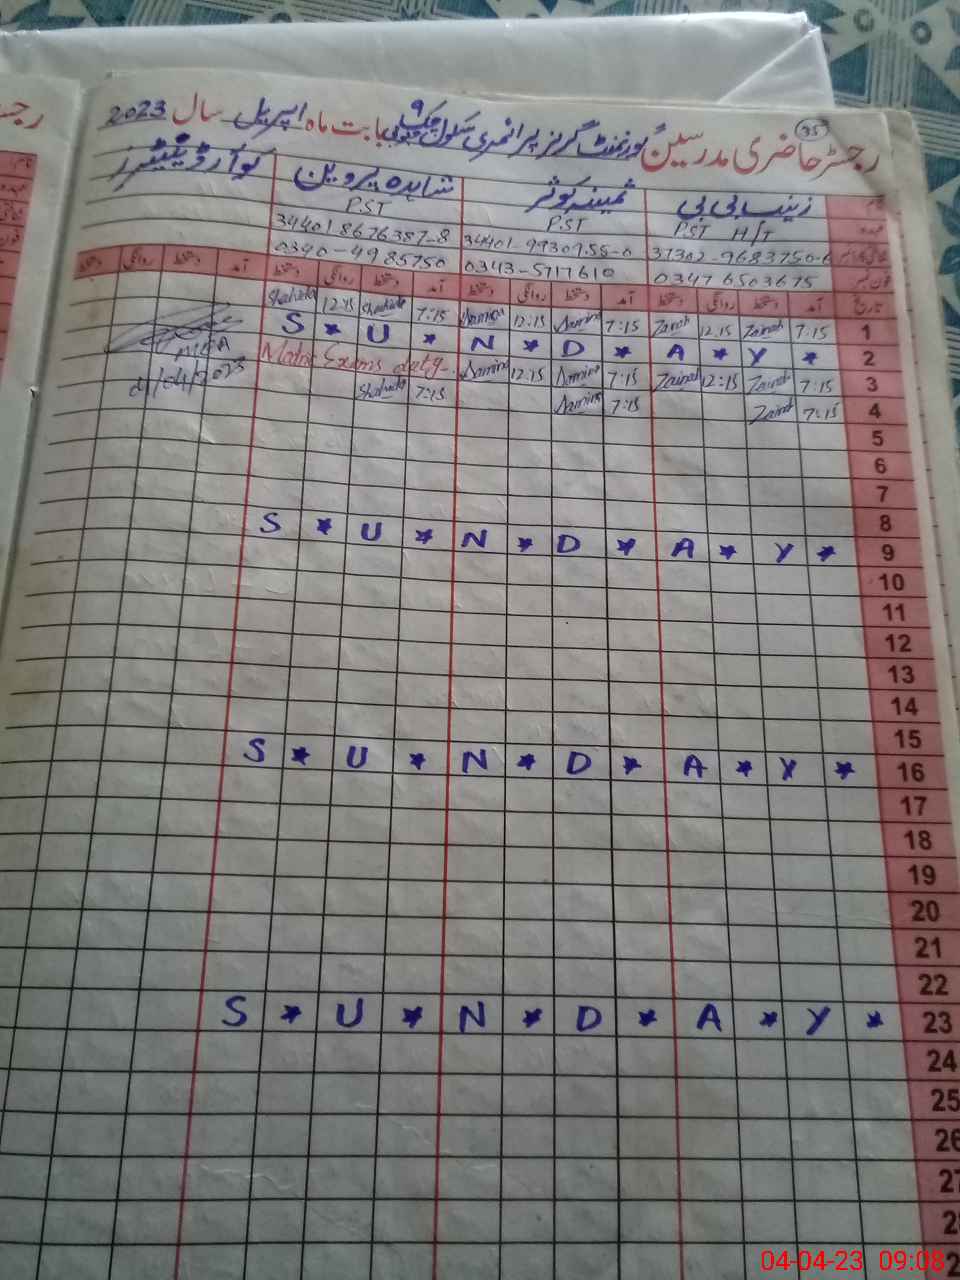 35
رجسٹر حاضری مدرسین گورنمنٹ گرلز پرائمری سکول چک ۹ جنوبی بابت ماہ اپریل سال 2023
نام زینب بی بی ثمینہ کوثر شاہدہ پروین کوآرڈینیٹرز
عہدہ PST H/T PST P.ST
37302-9683750-6 34401-9930955-0 34401 8676387-8
03476503675 0343-5717610 0340-4985750
تاریخ آمد دستخط روانگی دستخط آمد دستخط روانگی دستخط آمد دستخط روانگی دستخط آمد دستخط روانگی دستخط
1 7:15 Zainab 12:15 Zainab 7:15 Samina 12:15 Samina 7:15 Shahida 12:15 Shahida
S * U * N * D * A * Y * 2
3 7:15 Zainab 12:15 Zainab 7:15 Samina 12:15 Samina Matric Exams duty
MEA
4 7:15 Zainab 7:15 Samina 7:15 Shahida
04/04/2023
5
6
7
8
S * U * N * D * A * Y * 9
10
11
12
13
14
15
S * U * N * D * A * Y * 16
17
18
19
20
21
22
S * U * N * D * A * Y * 23
24
25
26
27
04-04-23 09:08